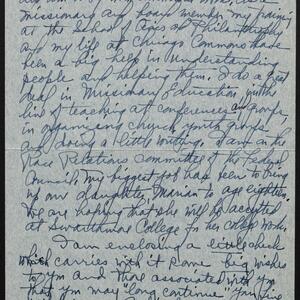 missionary and board member my training
at the School of Philanthropy
and my life at Chicago Commons have
been a big help in understanding
people and helping them. I do a great
deal in Missionary Education in the
line of teaching at conferences, and groups,
in organizing church youth groups
and doing a little writing. I am on the
Race Relations Committee of the Federal
Council. My biggest job has been to bring
up our daughter, Marian to age eighteen.
We are hoping that she will be accepted
at Swarthmore College for her college work.
I am enclosing a little check
which carries with it some big wishes
to you and those associated with you
that you may "long continue"